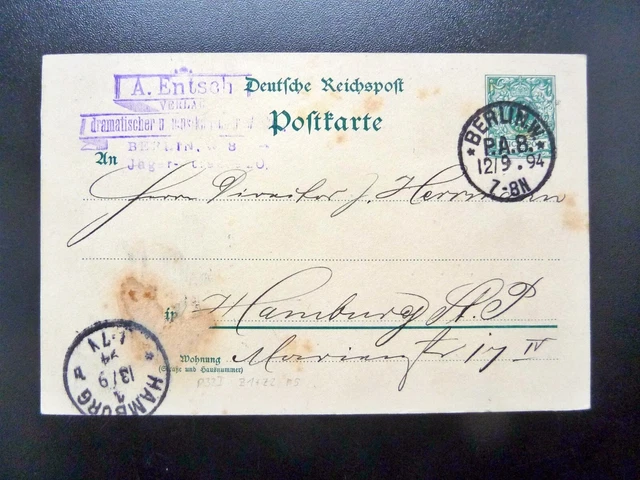 A. Entsch
VERLAG
dramatischer
BERLIN, W 8
Deutsche Reichspost
Postkarte
BERLIN.W.
P.A.B.
12/9.94
7-8N
An
Herrn Director J. Herrmann
in Hamburg St. P
Wohnung
(Straße und Hausnummer)
Marienstr 17 IV
HAMBURG
1
13/9
94